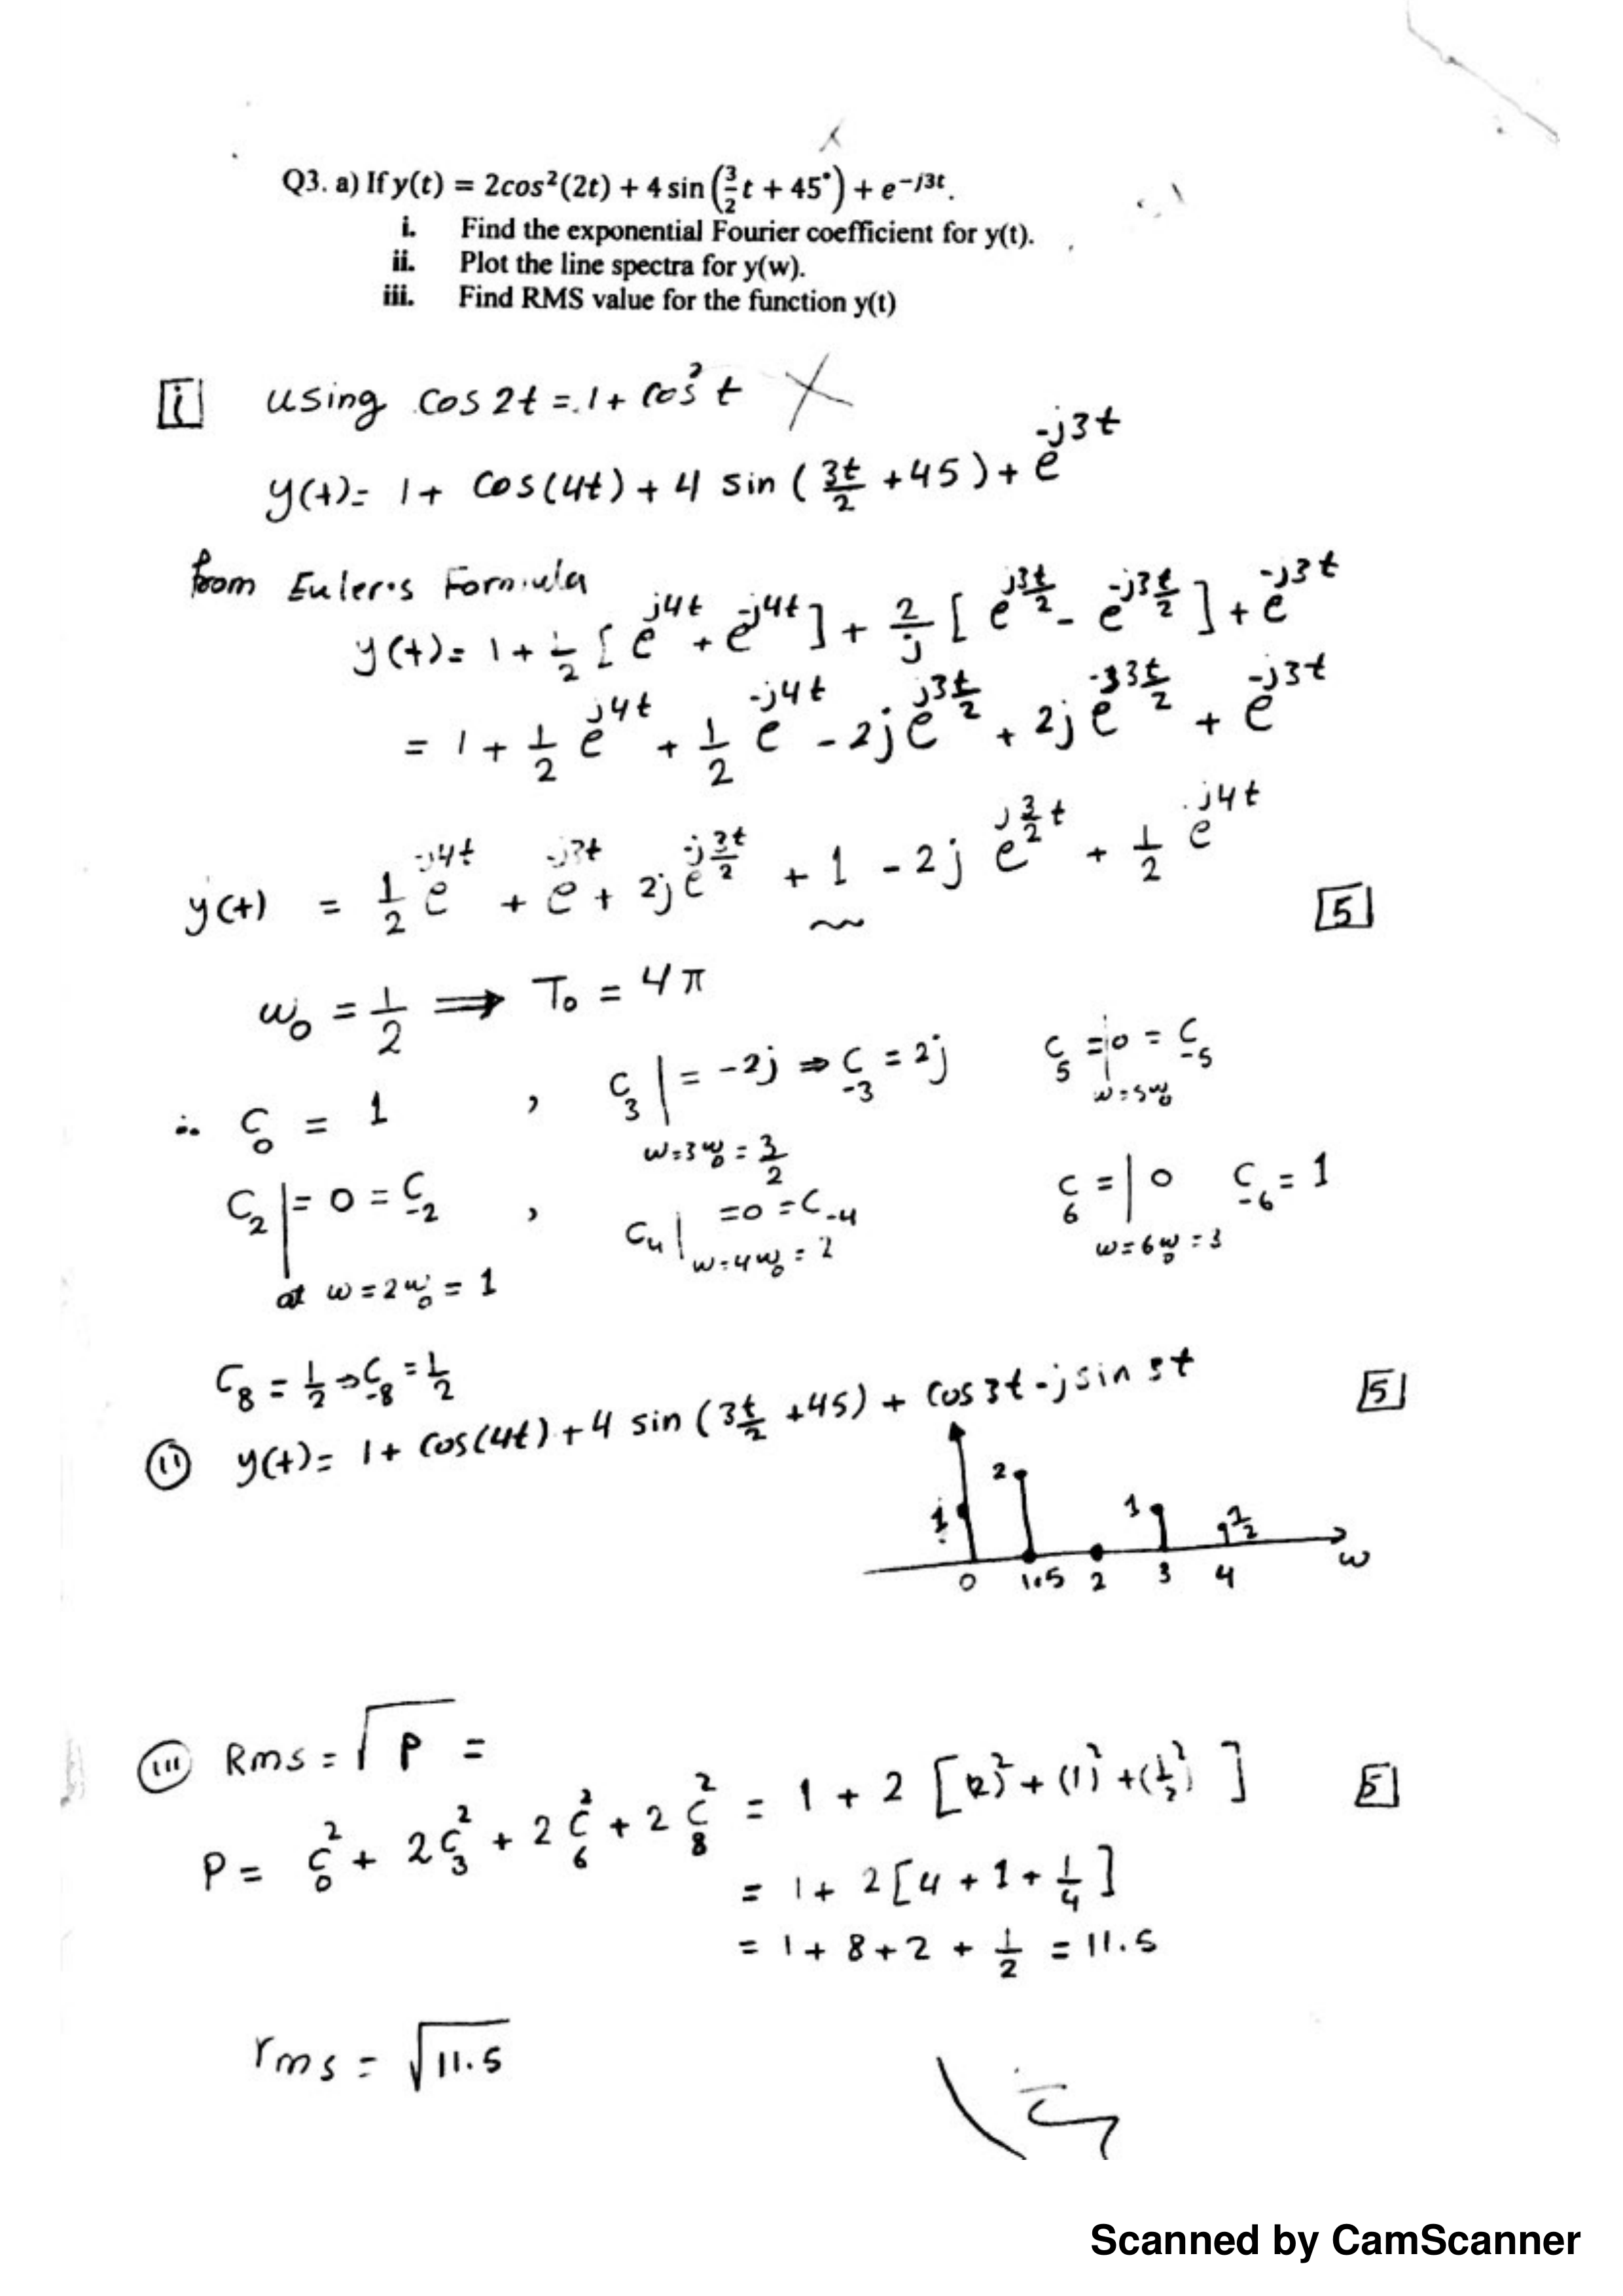 Q3. a) If y(t) = 2cos²(2t) + 4 sin (3/2 t + 45°) + e^-j3t.
i. Find the exponential Fourier coefficient for y(t).
ii. Plot the line spectra for y(w).
iii. Find RMS value for the function y(t)
i using cos 2t = 1 + cos² t
y(t) = 1 + cos(4t) + 4 sin (3t/2 + 45) + e^-j3t
from Euler's Formula
y(t) = 1 + 1/2 [e^j4t + e^-j4t] + 2/j [e^j3t/2 - e^-j3t/2] + e^-j3t
= 1 + 1/2 e^j4t + 1/2 e^-j4t - 2j e^j3t/2 + 2j e^-j3t/2 + e^-j3t
y(t) = 1/2 e^-j4t + e^-j3t + 2j e^-j3t/2 + 1 - 2j e^j3/2t + 1/2 e^j4t
5
ω₀ = 1/2 ⟹ T₀ = 4π
∴ C₀ = 1 , C₃ | = -2j ⇒ C₋₃ = 2j C₅ = | 0 = C₋₅
w=3w₀ = 3/2 w=5w₀
C₂ | = 0 = C₋₂ , C₄ | = 0 = C₋₄ C₆ = | 0 C₋₆ = 1
at w = 2w₀ = 1 w=4w₀ = 2 w=6w₀ = 3
C₈ = 1/2 ⇒ C₋₈ = 1/2
ii y(t) = 1 + cos(4t) + 4 sin (3t/2 + 45) + cos 3t - j sin 3t
5
1 2 1 1/2
0 1.5 2 3 4 w
iii Rms = √P =
P = C₀² + 2C₃² + 2C₆² + 2C₈² = 1 + 2 [(2)² + (1)² + (1/2)²]
5
= 1 + 2 [4 + 1 + 1/4]
= 1 + 8 + 2 + 1/2 = 11.5
rms = √11.5
Scanned by CamScanner